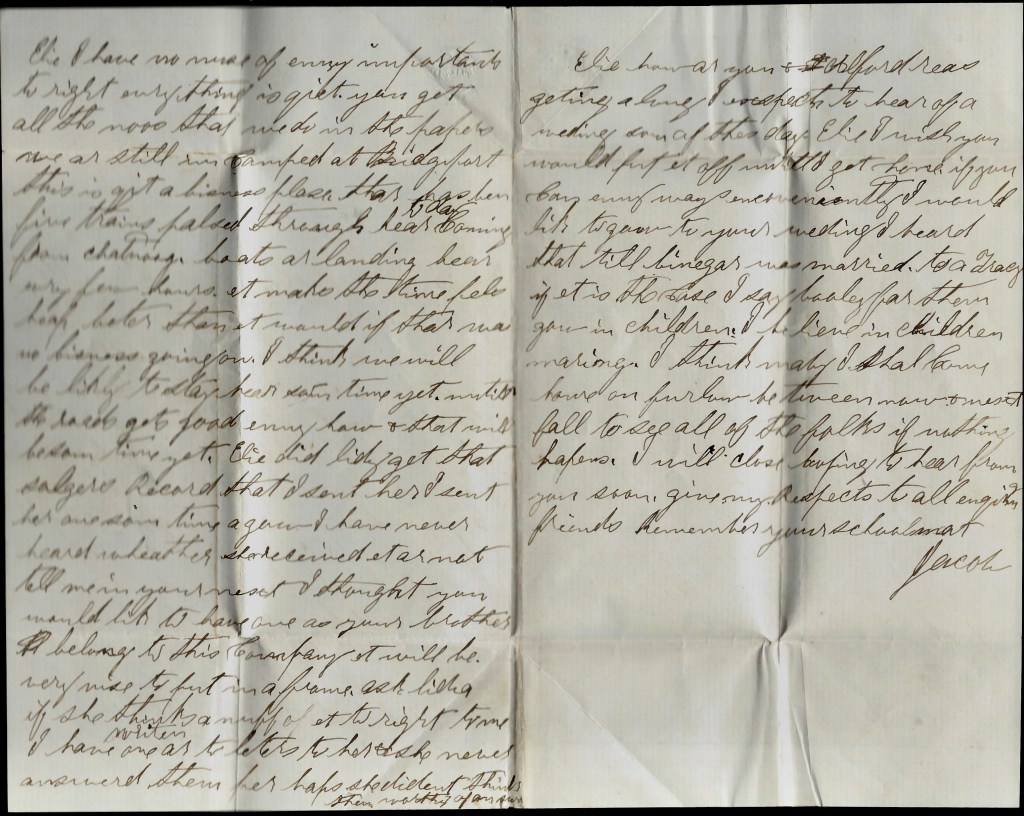 Elie I have no nuse of enny importants
to right evrything is qiet. you get
all the noos that we do in the papers
we ar still in Camped at Bridgeport
this is qit a bisness plase. thar has ben
five trains passed through hear to day Coming
from chatnoog. boats ar landing hear
evry few hours. et make the time pas
heap beter than et would if thar was
no bisness going on. I think we will
be likly to stay hear som time yet. untill
the roads gets good enny how & that will
be som time yet. Elie did lidy get that
solgers Record that I sent her I sent
her one som time agow I have never
heard wheather she received et ar not
tell me in your next I thought you
would lik to have one as your brother
belong to this Company et will be
very nise to put in a frame. ask lidia
if she thinks a nuff of et to right to me
I have writen one ar to leters to her & she never
answerd them per haps she dident think
them worthy of an

Elie how ar you & Alford reas
geting along I expects to hear of a
weding som of thes days Elie I wish you
would put it off untill I get home if you
Can enny ways enconveniently I would
lik to gow to your weding I heard
that till binegar was married. to a Tracy
if et is the Case I say booley for them
gow in children. I believe in children
mariong. I think maby I shal Come
home on furlow be tween now & next
fall to see all of the folks if nothing
hapens. I will close hoping to hear from
you soon. give my Respects to all enquiring
friends Remember your schoolmat
Jacob